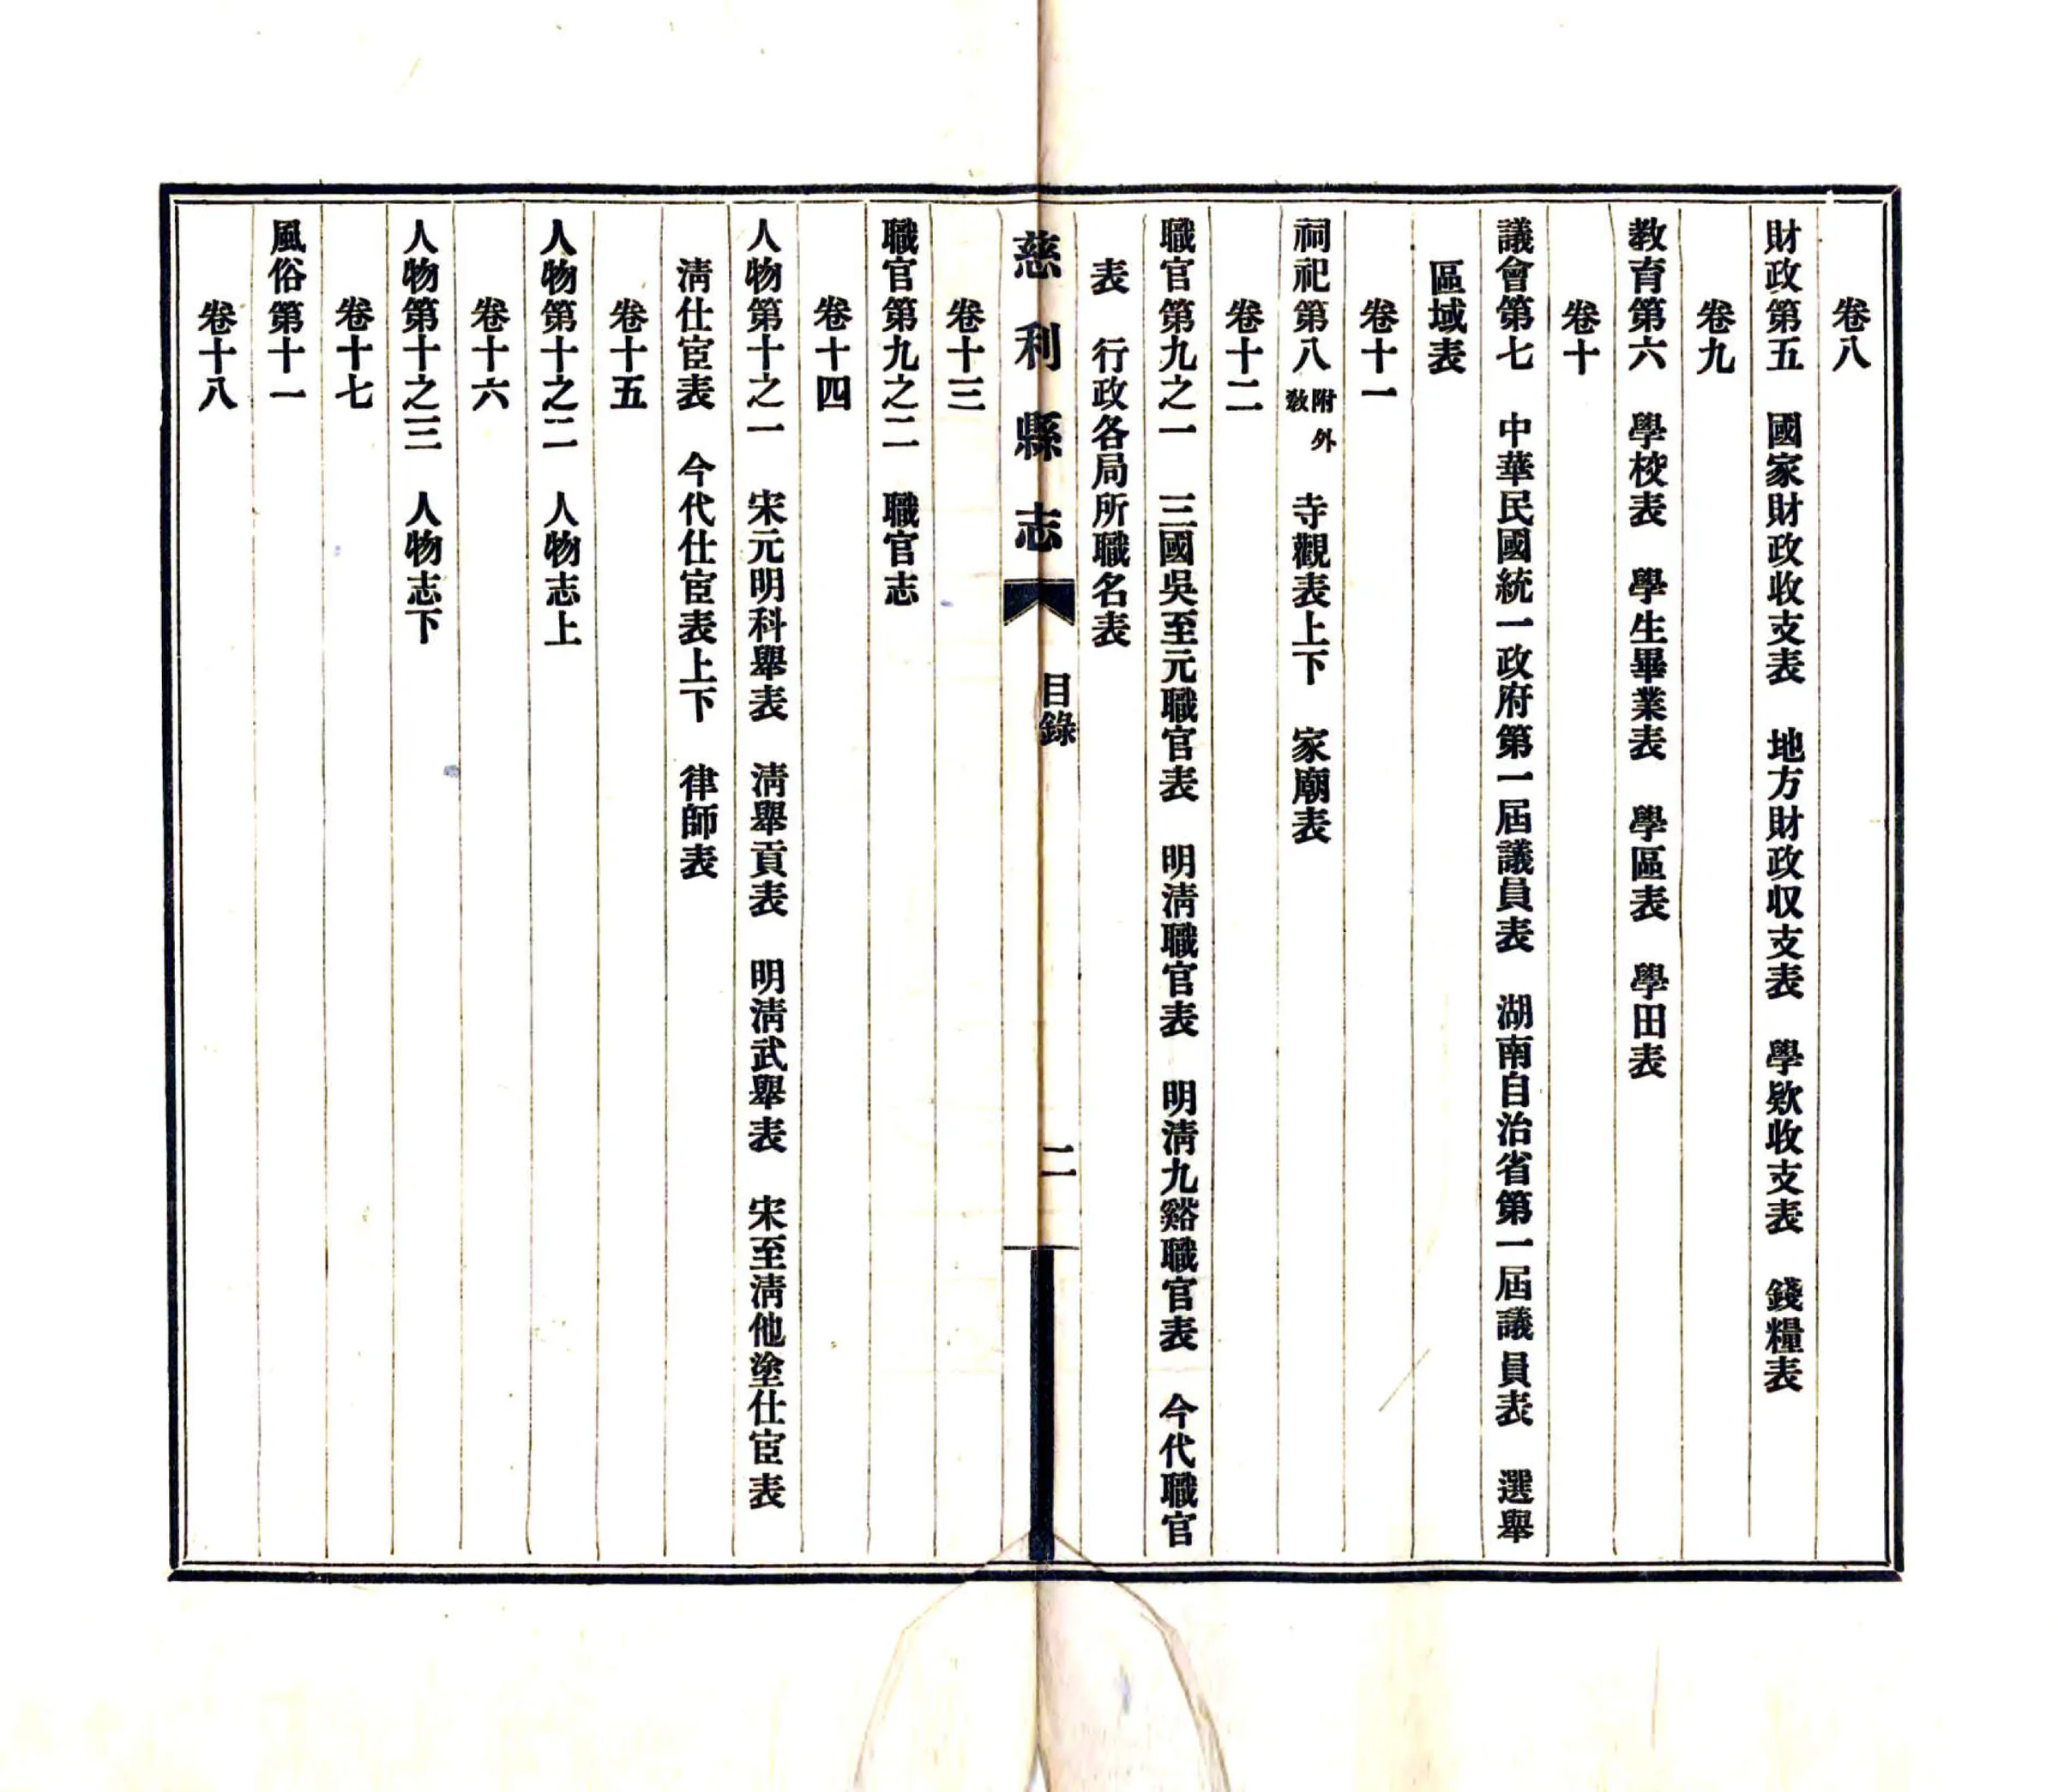 卷八
財政第五　國家財政收支表　地方財政収支表　學欵收支表　錢糧表
卷九
教育第六　學校表　學生畢業表　學區表　學田表
卷十
議會第七　中華民國統一政府第一屆議員表　湖南自治省第一屆議員表　選舉
區域表
卷十一
祠祀第八　附外敎　寺觀表上下　家廟表
卷十二
職官第九之一　三國吳至元職官表　明淸職官表　明淸九谿職官表　今代職官
表　行政各局所職名表
慈利縣志　目錄　二
卷十三
職官第九之二　職官志
卷十四
人物第十之一　宋元明科舉表　淸舉貢表　明淸武舉表　宋至淸他塗仕宦表
淸仕宦表　今代仕宦表上下　律師表
卷十五
人物第十之二　人物志上
卷十六
人物第十之三　人物志下
卷十七
風俗第十一
卷十八